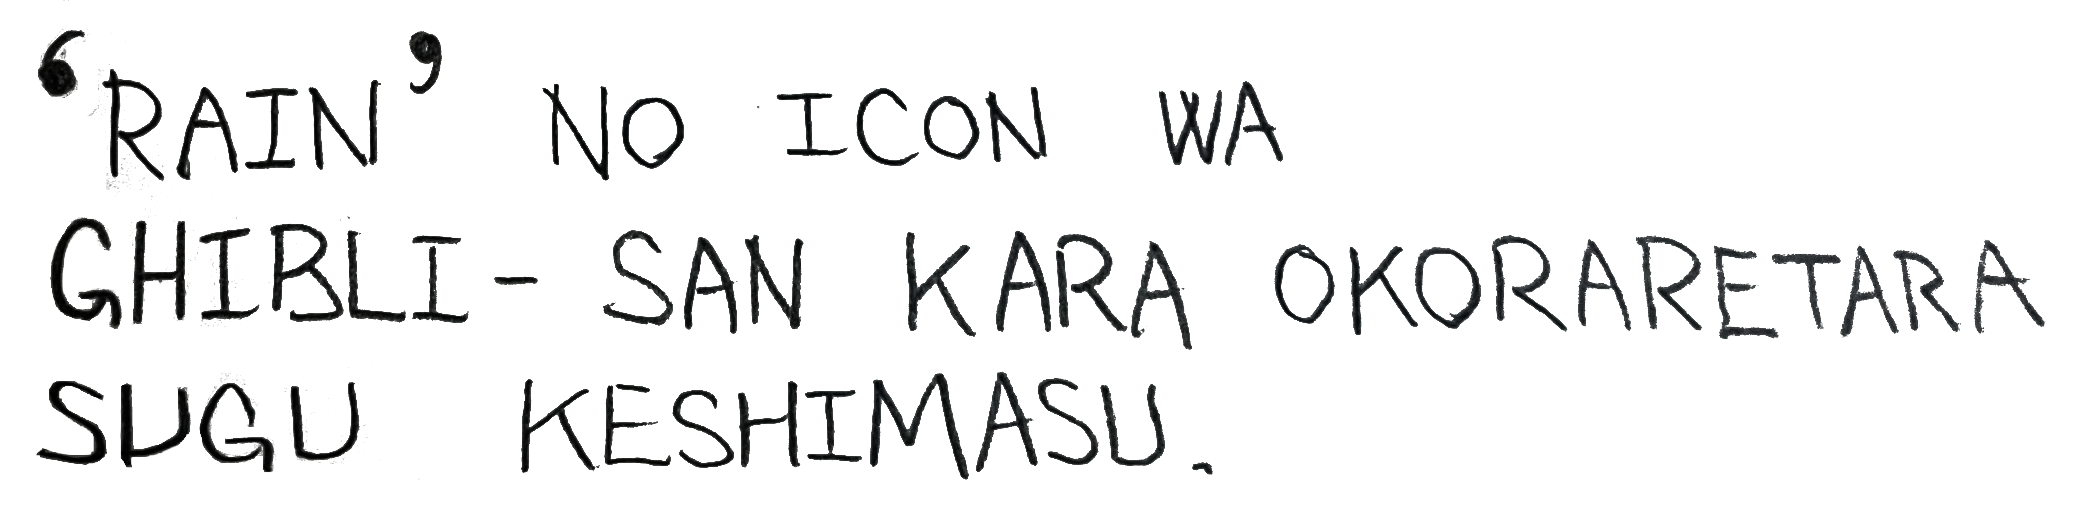 ‘RAIN’ NO ICON WA
GHIBLI-SAN KARA OKORARETARA
SUGU KESHIMASU.